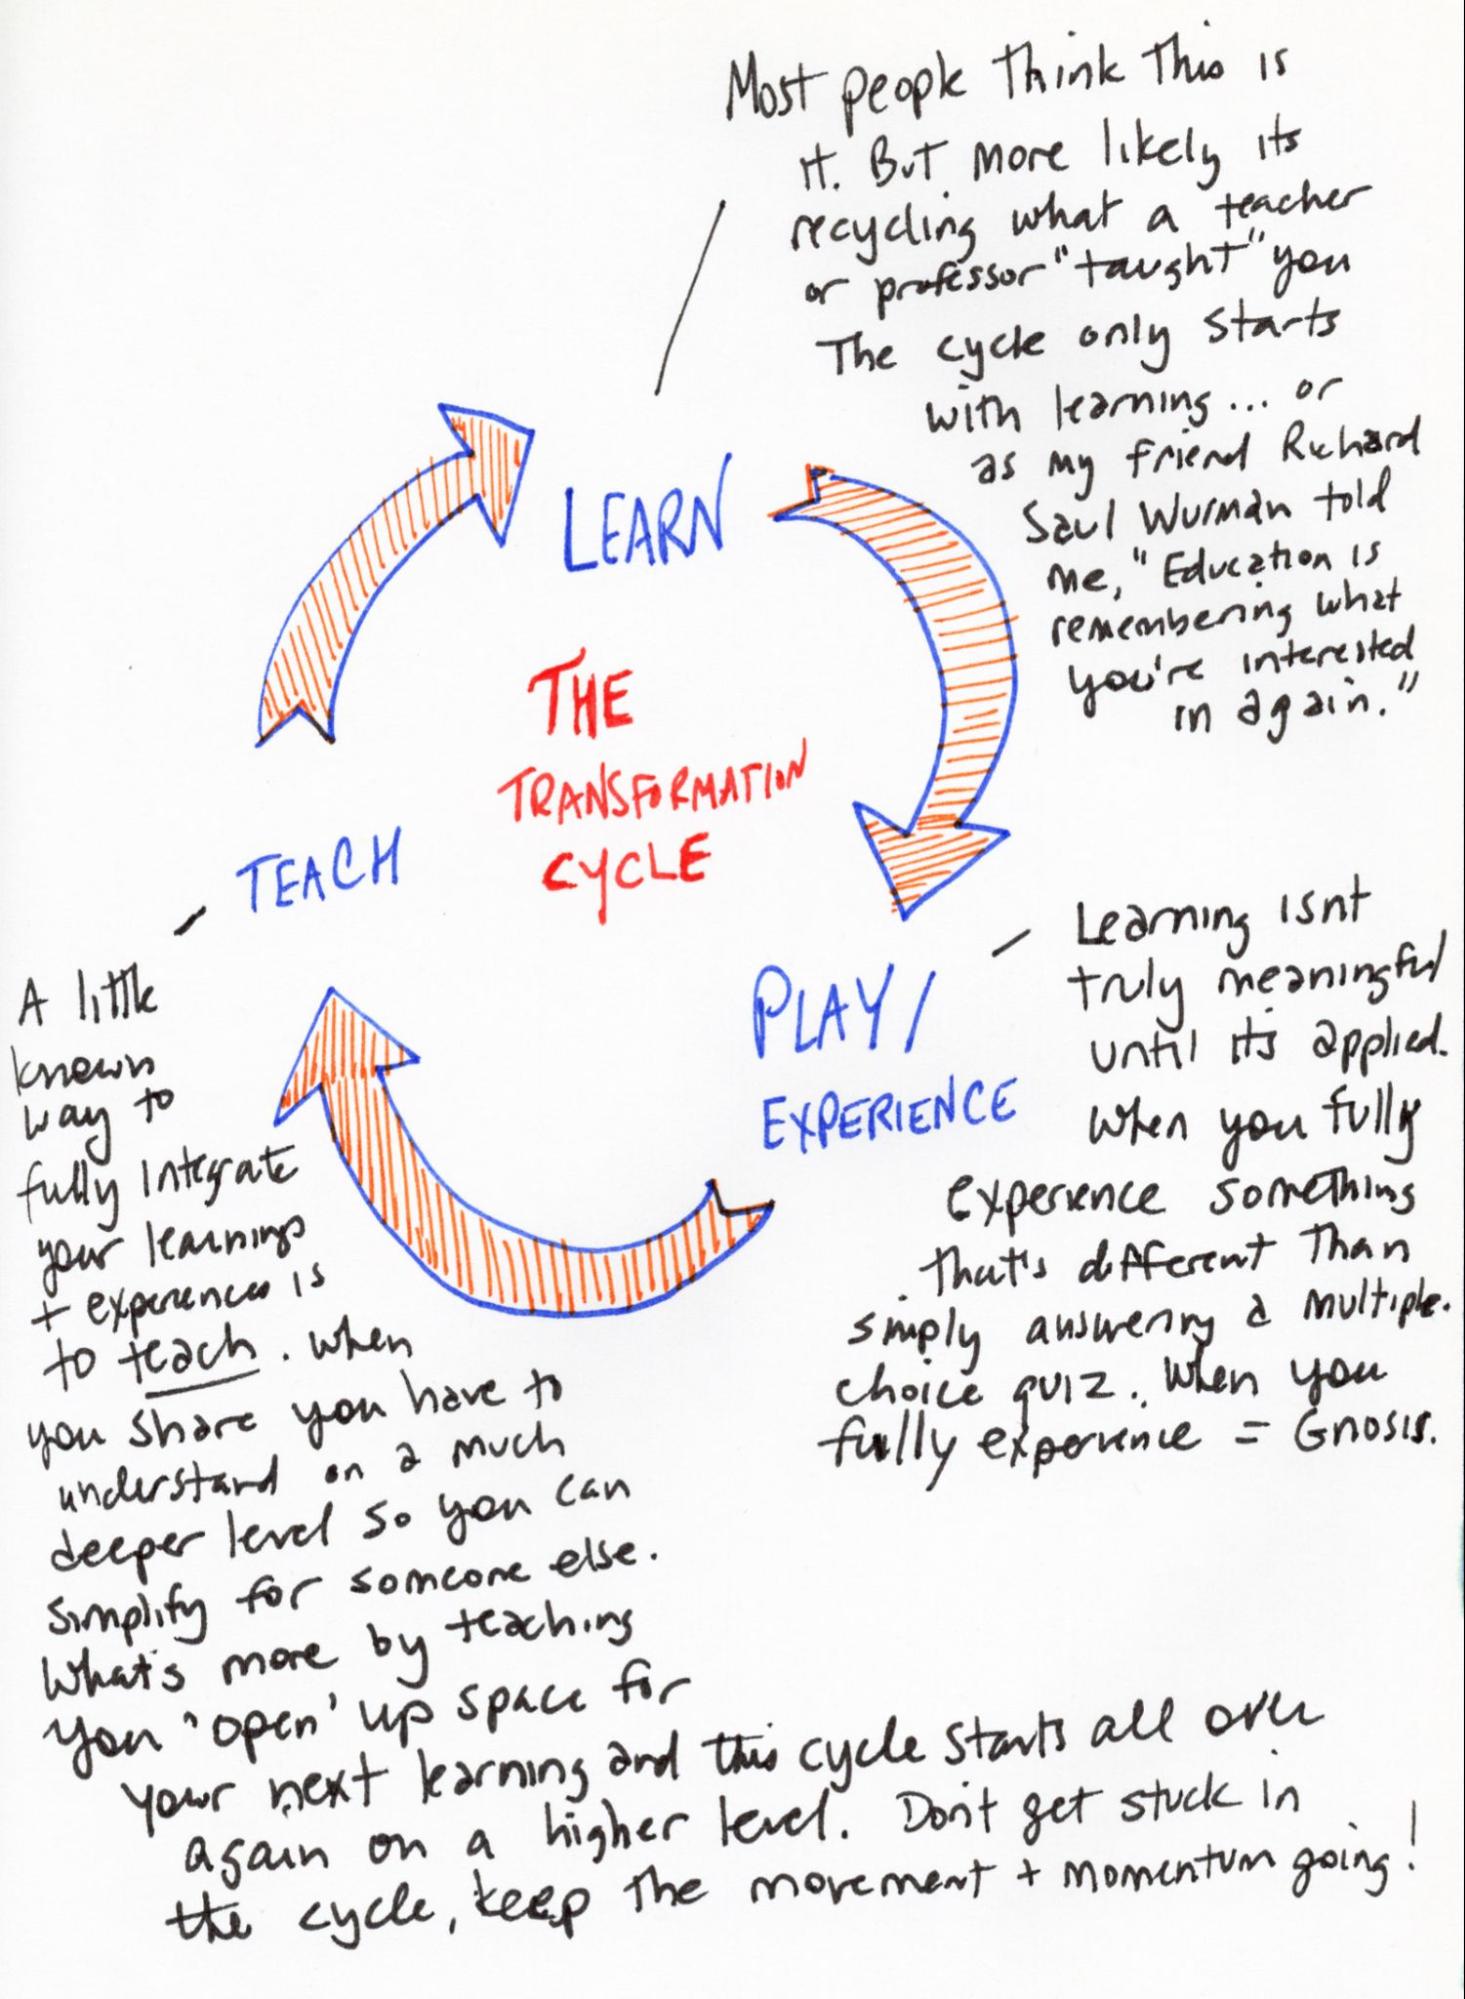 Most people Think This is
it. But more likely its
recycling what a teacher
or professor "taught" you
The cycle only starts
with learning... or
as my friend Richard
Saul Wurman told
me, "Education is
remembering what
you're interested
in again."
LEARN
THE
TRANSFORMATION
CYCLE
TEACH
PLAY/
EXPERIENCE
Learning isnt
truly meaningful
until its applied.
When you fully
experience something
that's different Than
simply answering a multiple.
choice quiz. When you
fully experience = Gnosis.
A little
known
way to
fully integrate
your learnings
+ experiences is
to teach. When
you share you have to
understand on a much
deeper level so you can
simplify for someone else.
What's more by teaching
you 'open' up space for
your next learning and this cycle starts all over
again on a higher level. Don't get stuck in
the cycle, keep The movement + momentum going!